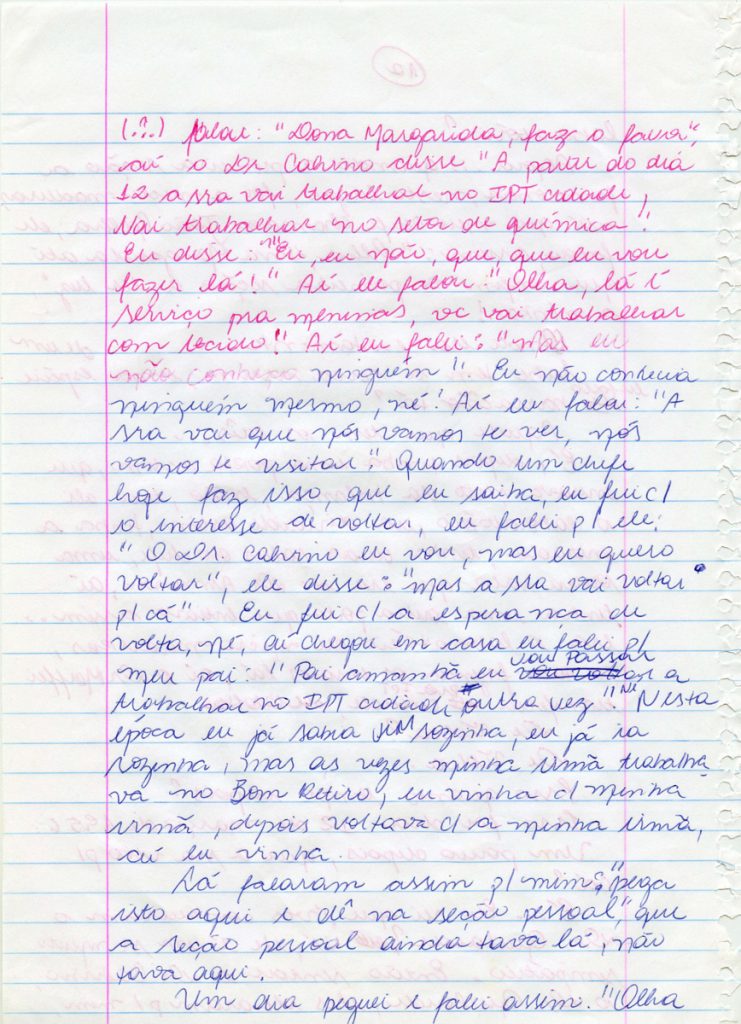 12
(...) falar: "Dona Margarida, faz o favor",
aí o Dr. Cabrino disse "A partir do dia
12 a sra vai trabalhar no IPT cidade,
vai trabalhar no setor de química".
Eu disse: "Eu, eu não, que, que eu vou
fazer lá!" Aí ele falou: "Olha, lá é
serviço pra meninas, vc vai trabalhar
com tecido". Aí eu falei: "Mas eu
não conheço ninguém". Eu não conhecia
ninguém mesmo, né! Aí ele falou: "A
sra vai que nós vamos te ver, nós
vamos te visitar". Quando um chefe
hoje faz isso, que eu saiba, eu fui c/
o interesse de voltar, eu falei p/ ele:
"O Dr. Cabrino eu vou, mas eu quero
voltar", ele disse: "mas a sra vai voltar
p/ cá" Eu fui c/ a esperança de
volta, né, aí chegou em casa eu falei p/
meu pai: "Pai amanhã eu vou passar a
trabalhar no IPT cidade outra vez". Nesta
época eu já sabia vim sozinha, eu já ia
sozinha, mas as vezes minha irmã trabalha-
va no Bom Retiro, eu vinha c/ minha
irmã, depois voltava c/ a minha irmã,
aí eu vinha.
Lá falaram assim p/ mim: "pega
isto aqui e dê na seção pessoal" que
a seção pessoal ainda tava lá, não
tava aqui.
Um dia peguei e falei assim. "Olha